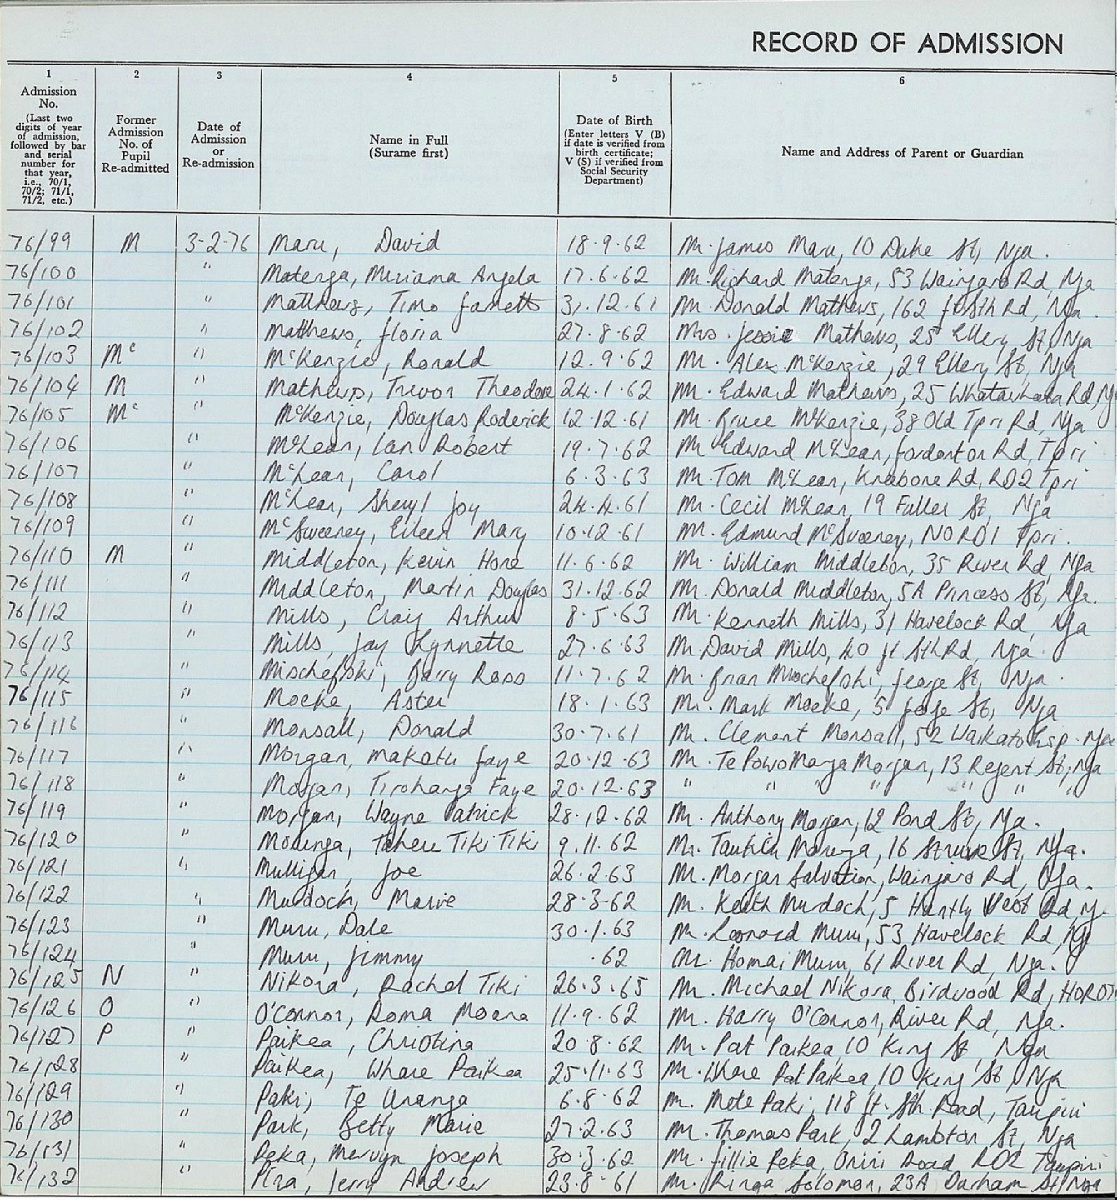 RECORD OF ADMISSION
1 2 3 4 5 6
Admission No. (Last two digits of year of admission, followed by bar and serial number for that year, i.e., 70/1, 70/2; 71/1, 71/2, etc.)
Former Admission No. of Pupil Re-admitted
Date of Admission or Re-admission
Name in Full (Surame first)
Date of Birth (Enter letters V (B) if date is verified from birth certificate; V (S) if verified from Social Security Department)
Name and Address of Parent or Guardian
76/99 M 3-2-76 Maru, David 18.9.62 Mr. James Maru, 10 Duke St, Nga.
76/100 " Matenga, Miriama Angela 17.6.62 Mr. Richard Matenga, 53 Waingaro Rd, Nga
76/101 " Matthews, Timo 31.12.61 Mr. Donald Mathews, 162 Rd, Nga.
76/102 " Matthews, Gloria 27.8.62 Mrs. Jessie Mathews, 25 Ellery St, Nga
76/103 Mc " McKenzie, Ronald 12.9.62 Mr. Alex McKenzie, 29 Ellery St, Nga
76/104 M " Mathews, Trevor Theodore 24.1.62 Mr. Edward Mathews, 25 Rd,
76/105 Mc " McKenzie, Douglas Roderick 12.12.61 Mr. Bruce McKenzie, 38 Old Tpri Rd, Nga
76/106 " McLean, Ian Robert 19.7.62 Mr. Edward McLean, Gordonton Rd, Tpri
76/107 " McLean, Carol 6.3.63 Mr. Tom McLean, Rd, RD2 Tpri
76/108 " McLean, Sheryl Joy 24.4.61 Mr. Cecil McLean, 19 Fuller St, Nga
76/109 " McSweeney, Eileen Mary 10.12.61 Mr. Edmund McSweeney, NO RD1 Tpri.
76/110 M " Middleton, Kevin Hone 11.6.62 Mr. William Middleton, 35 River Rd, Nga
76/111 " Middleton, Martin Douglas 31.12.62 Mr. Donald Middleton, 5A Princess St, Nga.
76/112 " Mills, Craig Arthur 8.5.63 Mr. Kenneth Mills, 31 Havelock Rd, Nga
76/113 " Mills, Jay Lynnette 27.6.63 Mr. David Mills, 40 Gt Sth Rd, Nga.
76/114 " Mischefski, Barry Ross 11.7.62 Mr. Brian Mischefski, George St, Nga.
76/115 " Moeke, Aster 18.1.63 Mr. Mark Moeke, 5 George St, Nga
76/116 " Monsall, Donald 30.7.61 Mr. Clement Monsall, 52 Waikato Esp. Nga
76/117 " Morgan, Makatu Faye 20.12.63 Mr. Morgan, 13 Regent St, Nga
76/118 " Morgan, Tirohanga Faye 20.12.63 " " " " " "
76/119 " Morgan, Wayne Patrick 28.12.62 Mr. Anthony Morgan, 12 Pond St, Nga.
76/120 " Tiki Tiki 9.11.62 Mr. 16 St, Nga.
76/121 " Mulligan, Joe 26.2.63 Mr. Morgan Salvation, Waingaro Rd, Nga.
76/122 " Murdoch, Marie 28.3.62 Mr. Keith Murdoch, 5 Huntly West Rd,
76/123 " Muru, Dale 30.1.63 Mr. Leonard Muru, 53 Havelock Rd,
76/124 " Muru, Jimmy .62 Mr. Homai Muru, 61 River Rd, Nga.
76/125 N " Nikora, Rachel Tiki 26.3.65 Mr. Michael Nikora, Birdwood Rd,
76/126 O " O'Connor, Roma Moana 11.9.62 Mr. Harry O'Connor, River Rd, Nga.
76/127 P " Paikea, Christina 20.8.62 Mr. Pat Paikea 10 King St Nga
76/128 " Paikea, Whare Paikea 25.11.63 Mr. Whare Pat Paikea, 10 King St Nga
76/129 " Paki, Te Uranga 6.8.62 Mr. Mote Paki, 118 Gt. Sth Road, Taupiri
76/130 " Park, Betty Marie 27.2.63 Mr. Thomas Park, 2 Lambton St, Nga
76/131 " Peka, Mervyn Joseph 30.3.62 Mr. Peka, Road RD2 Taupiri
76/132 " Jerry Andrew 23.8.61 Mr. Ringa Solomon, 23A Durham St, Nga